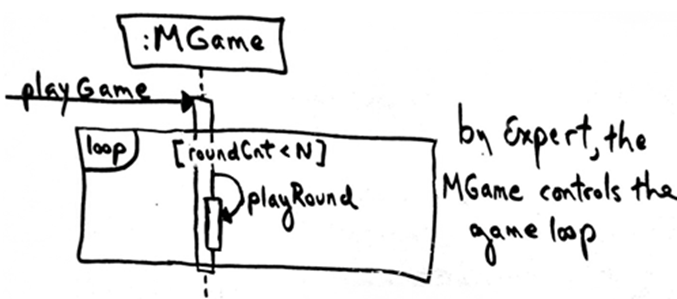 :MGame
playGame
loop
[roundCnt < N]
playRound
by Expert, the
MGame controls the
game loop